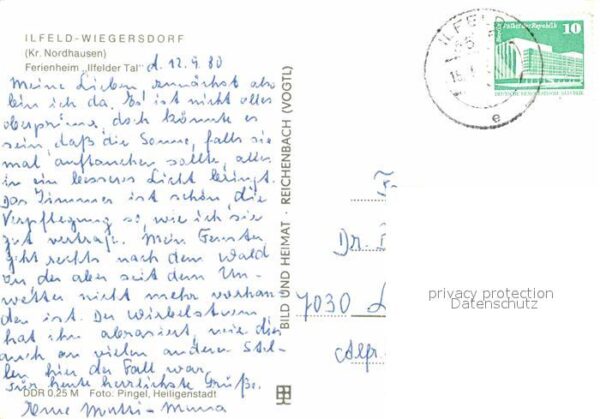 ILFELD-WIEGERSDORF
(Kr. Nordhausen)
Ferienheim „Ilfelder Tal"
d. 12.9.80
Meine Lieben, zunächst also
bin ich da. Es ist nicht alles
oberprima, doch könnte es
sein, daß die Sonne, falls sie
mal auftauchen sollte, alles
in ein besseres Licht bringt.
Das Zimmer ist schön, die
Verpflegung so, wie ich sie
gut vertrage. Mein Fenster
geht rechts nach dem Wald
zu, der aber seit dem Un-
wetter nicht mehr vorhan
den ist. Der Wirbelsturm
hat ihn abrasiert, wie dies
auch an vielen anderen Stel-
len hier der Fall war.
Für heute herzlichste Grüße.
Eure
DDR 0,25 M Foto: Pingel, Heiligenstadt
BILD UND HEIMAT · REICHENBACH (VOGTL)
ILFELD
e
Berlin, Palast der Republik
10
DEUTSCHE DEMOKRATISCHE REPUBLIK
Dr.
7030
privacy protection
Datenschutz